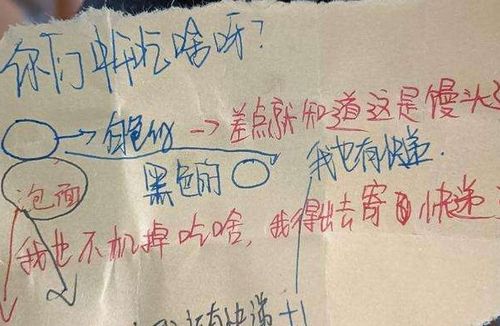 你们中午吃啥呀?
白色的 → 差点就知道这是馒头
我也有快递.
黑色的
泡面
我也不 吃啥, 我得出去寄快递
有快递+1